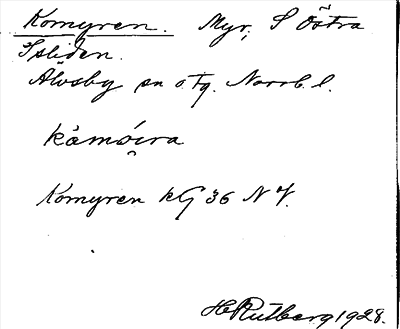 Komyren. Myr, S Östra
Isliden.
Älvsby sn o. tg. Norrb. l.
kåmọira
Komyren kG 36 N V.
H Rutberg 1928.